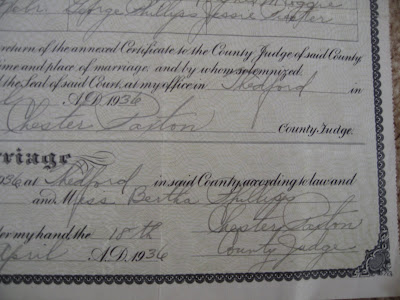 George Phillips Jessie
return of the annexed Certificate to the County Judge of said County
time and place of marriage, and by whom solemnized.
the Seal of said Court, at my office in Thedford in
A.D. 1936
Chester Paxton County Judge.
rriage
936 at Thedford in said County, according to law and
and Miss Bertha Phillips
Chester Paxton
er my hand, the 18th County Judge
April A.D. 1936